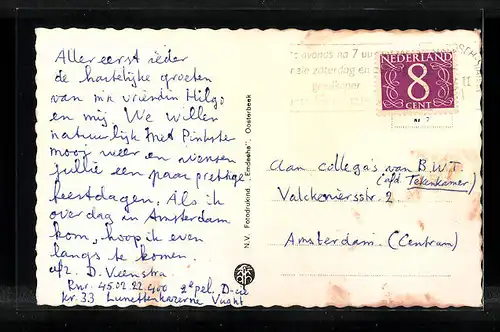 Allereerst ieder
de hartelijke groeten
van m'n vriendin Hilga
en mij. We willen
natuurlijk met Pinkster
mooi weer en wensen
jullie een paar prettige
feestdagen. Als ik
over dag in Amsterdam
kom, hoop ik even
langs te komen.
afz. D. Veenstra
Rnr. 45.02.22.400 2e pel. D-cie
Kr. 33 Lunettenkazerne Vught
N.V. Fotodrukind. "Emdeeha", Oosterbeek
's-avonds na 7 uu
hele zaterdag en
goedkoper
NEDERLAND
8
CENT
Aan collega's van B.W.T.
(afd. Tekenkamer)
Valckeniersstr. 2
Amsterdam (Centrum)